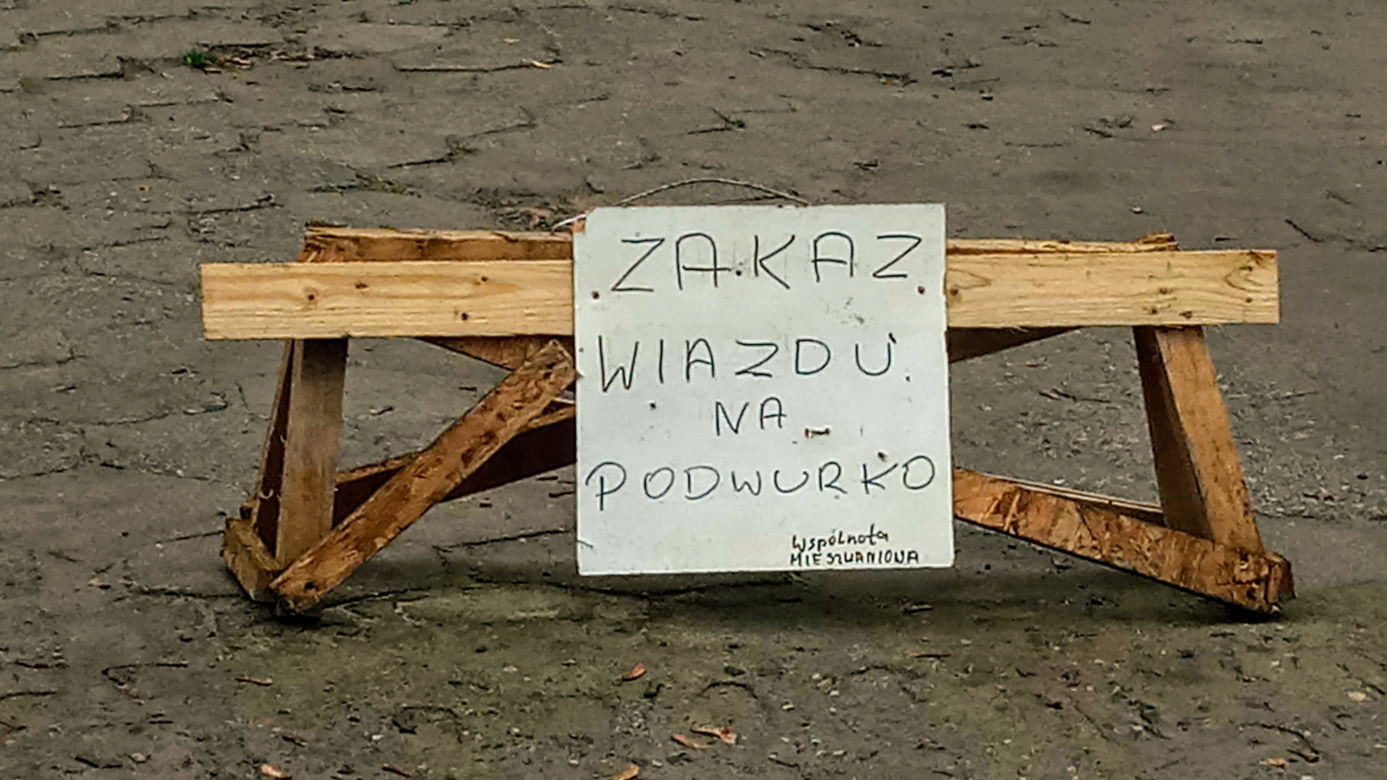 ZAKAZ
WIAZDU
NA
PODWURKO
Wspólnota
MIESZKANIOWA